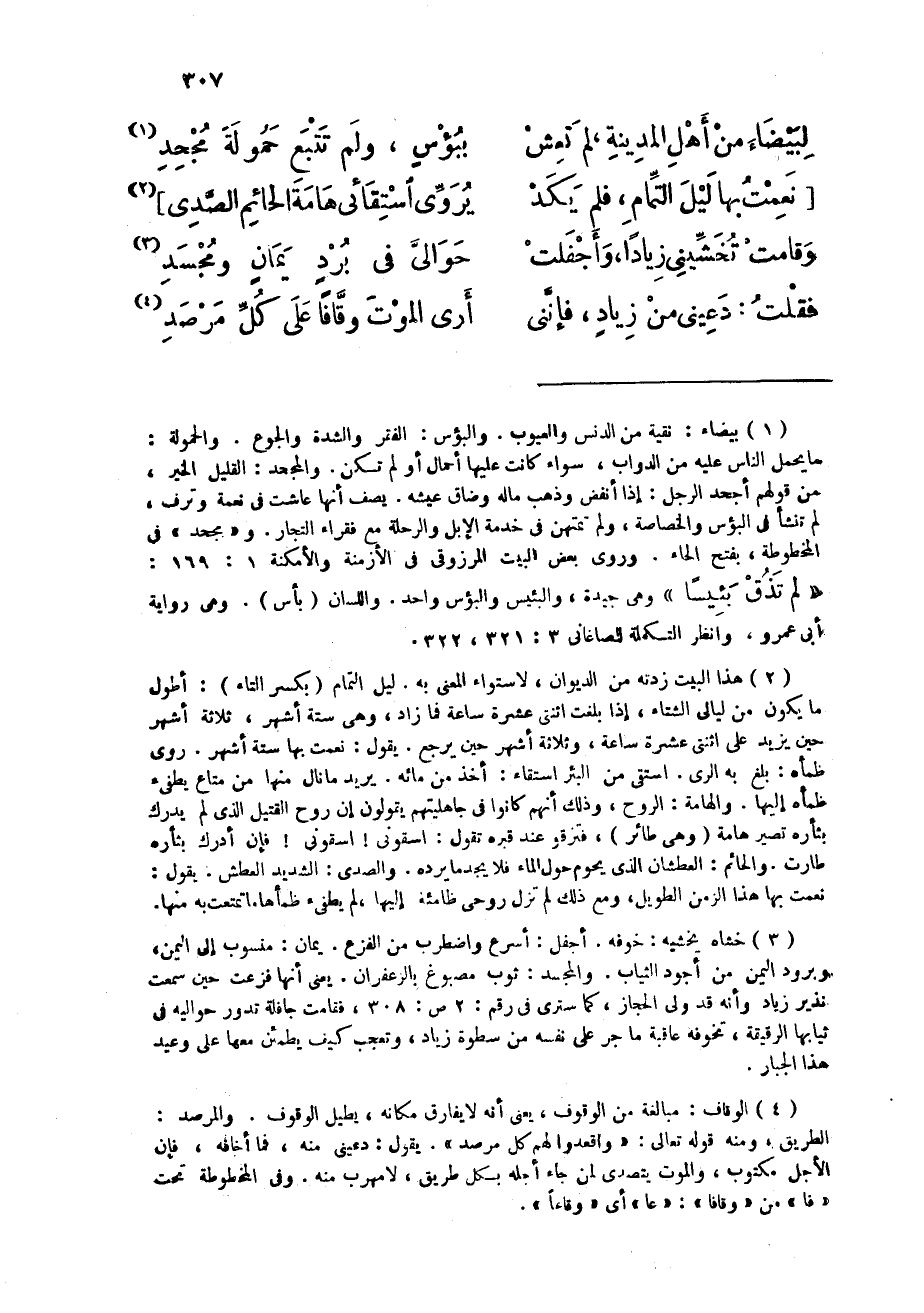 ٣٠٧
لِبَيْضَاءَ منْ أَهْلِ المدِينةِ، لم تَعِشْ بِبُؤْسٍ ، ولَم تَتْبَعْ حَمُولَةَ مُجْحِدِ (١)
[ نَعِمْتُ بها لَيْلَ التِّمامِ، فلم يَكَدْ يُرَوِّى ٱسْتِقَائَى هَامَةَ الحَائِمِ الصَّدِى ] (٢)
وَقامتْ تُخَشِّينِى زِيادًا، وَأَجْفَلتْ حَوَالَىَّ فى بُرْدٍ يَمَانٍ ومُجْسَدِ (٣)
فقلْتُ : دَعِينى منْ زِيادٍ ، فإنَّنى أَرى الموْتَ وقَّافًا عَلَى كُلِّ مَرْصَدِ (٤)
( ١ ) بيضاء : نقية من الدنس والعيوب . والبؤس : الفقر والشدة والجوع . والحمولة :
ما يحمل الناس عليه من الدواب ، سواء كانت عليها أحمال أو لم تكن . والمجحد : القليل الخير ،
من قولهم أجحد الرجل : إذا أنفض وذهب ماله وضاق عيشه . يصف أنها عاشت فى نعمة وترف ،
لم تنشأ فى البؤس والخصاصة ، ولم تمتهن فى خدمة الإبل والرحلة مع فقراء التجار . و « مجحد » فى
المخطوطة ، بفتح الحاء . وروى بعض البيت المرزوقى فى الأزمنة والأمكنة ١ : ١٦٩ :
« لم تَذُقْ بَئِيسًا » وهى جيدة ، والبئيس والبؤس واحد . واللسان ( بأس ) . وهى رواية
أبى عمرو ، وانظر التكملة للصاغانى ٣ : ٣٢١ ، ٣٢٢ .
( ٢ ) هذا البيت زدته من الديوان ، لاستواء المعنى به . ليل التمام ( بكسر التاء ) : أطول
ما يكون من ليالى الشتاء ، إذا بلغت اثنتى عشرة ساعة فما زاد ، وهى ستة أشهر ، ثلاثة أشهر
حين يزيد على اثنتى عشرة ساعة ، وثلاثة أشهر حين يرجع . يقول : نعمت بها ستة أشهر . روى
ظمأه : بلغ به الرى . استقى من البئر استقاء : أخذ من مائه . يريد ما نال منها من متاع يطفىء
ظمأه إليها . والهامة : الروح ، وذلك أنهم كانوا فى جاهليتهم يقولون إن روح القتيل الذى لم يدرك
بثأره تصير هامة ( وهى طائر ) ، فتزقو عند قبره تقول : اسقونى ! اسقونى ! فإن أدرك بثأره
طارت . والحائم : العطشان الذى يحوم حول الماء فلا يجد ما يرده . والصدى : الشديد العطش . يقول :
نعمت بها هذا الزمن الطويل، ومع ذلك لم تزل روحى ظامئة إليها ، لم يطفىء ظمأها ما تمتعت به منها.
( ٣ ) خشاه يخشيه : خوفه . أجفل : أسرع واضطرب من الفزع . يمان : منسوب إلى اليمن،
وبرود اليمن من أجود الثياب . والمجسد : ثوب مصبوغ بالزعفران . يعنى أنها فزعت حين سمعت
نذير زياد وأنه قد ولى الحجاز ، كما سترى فى رقم : ٢ ص : ٣٠٨ ، فقامت جافلة تدور حواليه فى
ثيابها الرقيقة ، تخوفه عاقبة ما جر على نفسه من سطوة زياد ، وتعجب كيف يطمئن معها على وعيد
هذا الجبار .
( ٤ ) الوقاف : مبالغة من الوقوف ، يعنى أنه لا يفارق مكانه ، يطيل الوقوف . والمرصد :
الطريق ، ومنه قوله تعالى : « واقعدوا لهم كل مرصد » . يقول : دعينى منه ، فما أخافه ، فإن
الأجل مكتوب ، والموت يتصدى لمن جاء أجله بكل طريق ، لا مهرب منه . وفى المخطوطة تحت
« فا » من « وقافا » : « عا » أى « وقاعاً » .